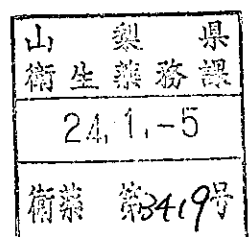 山梨県
衛生薬務課
24.1.-5
衛薬 第3419号